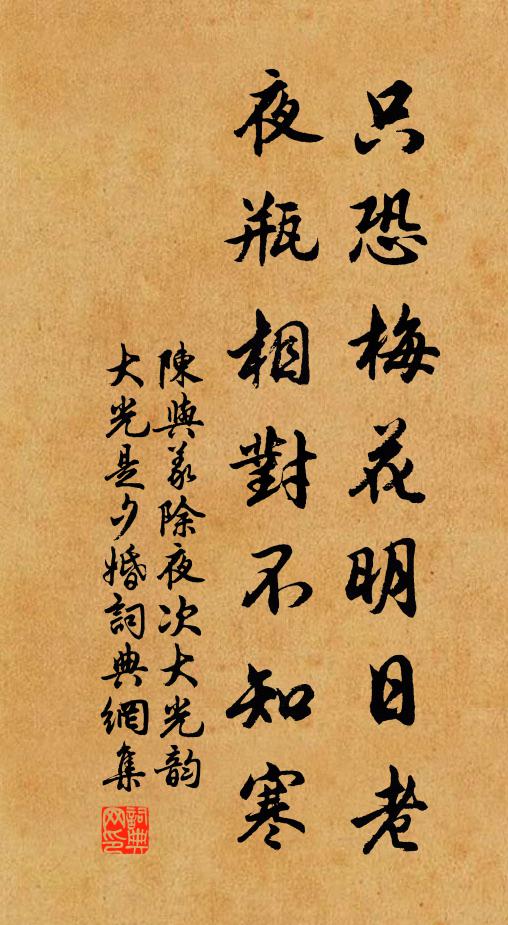 只恐梅花明日老
夜瓶相對不知寒
陳與義除夜次大光韵
大光是夕婚詞典網集
詞典
网印